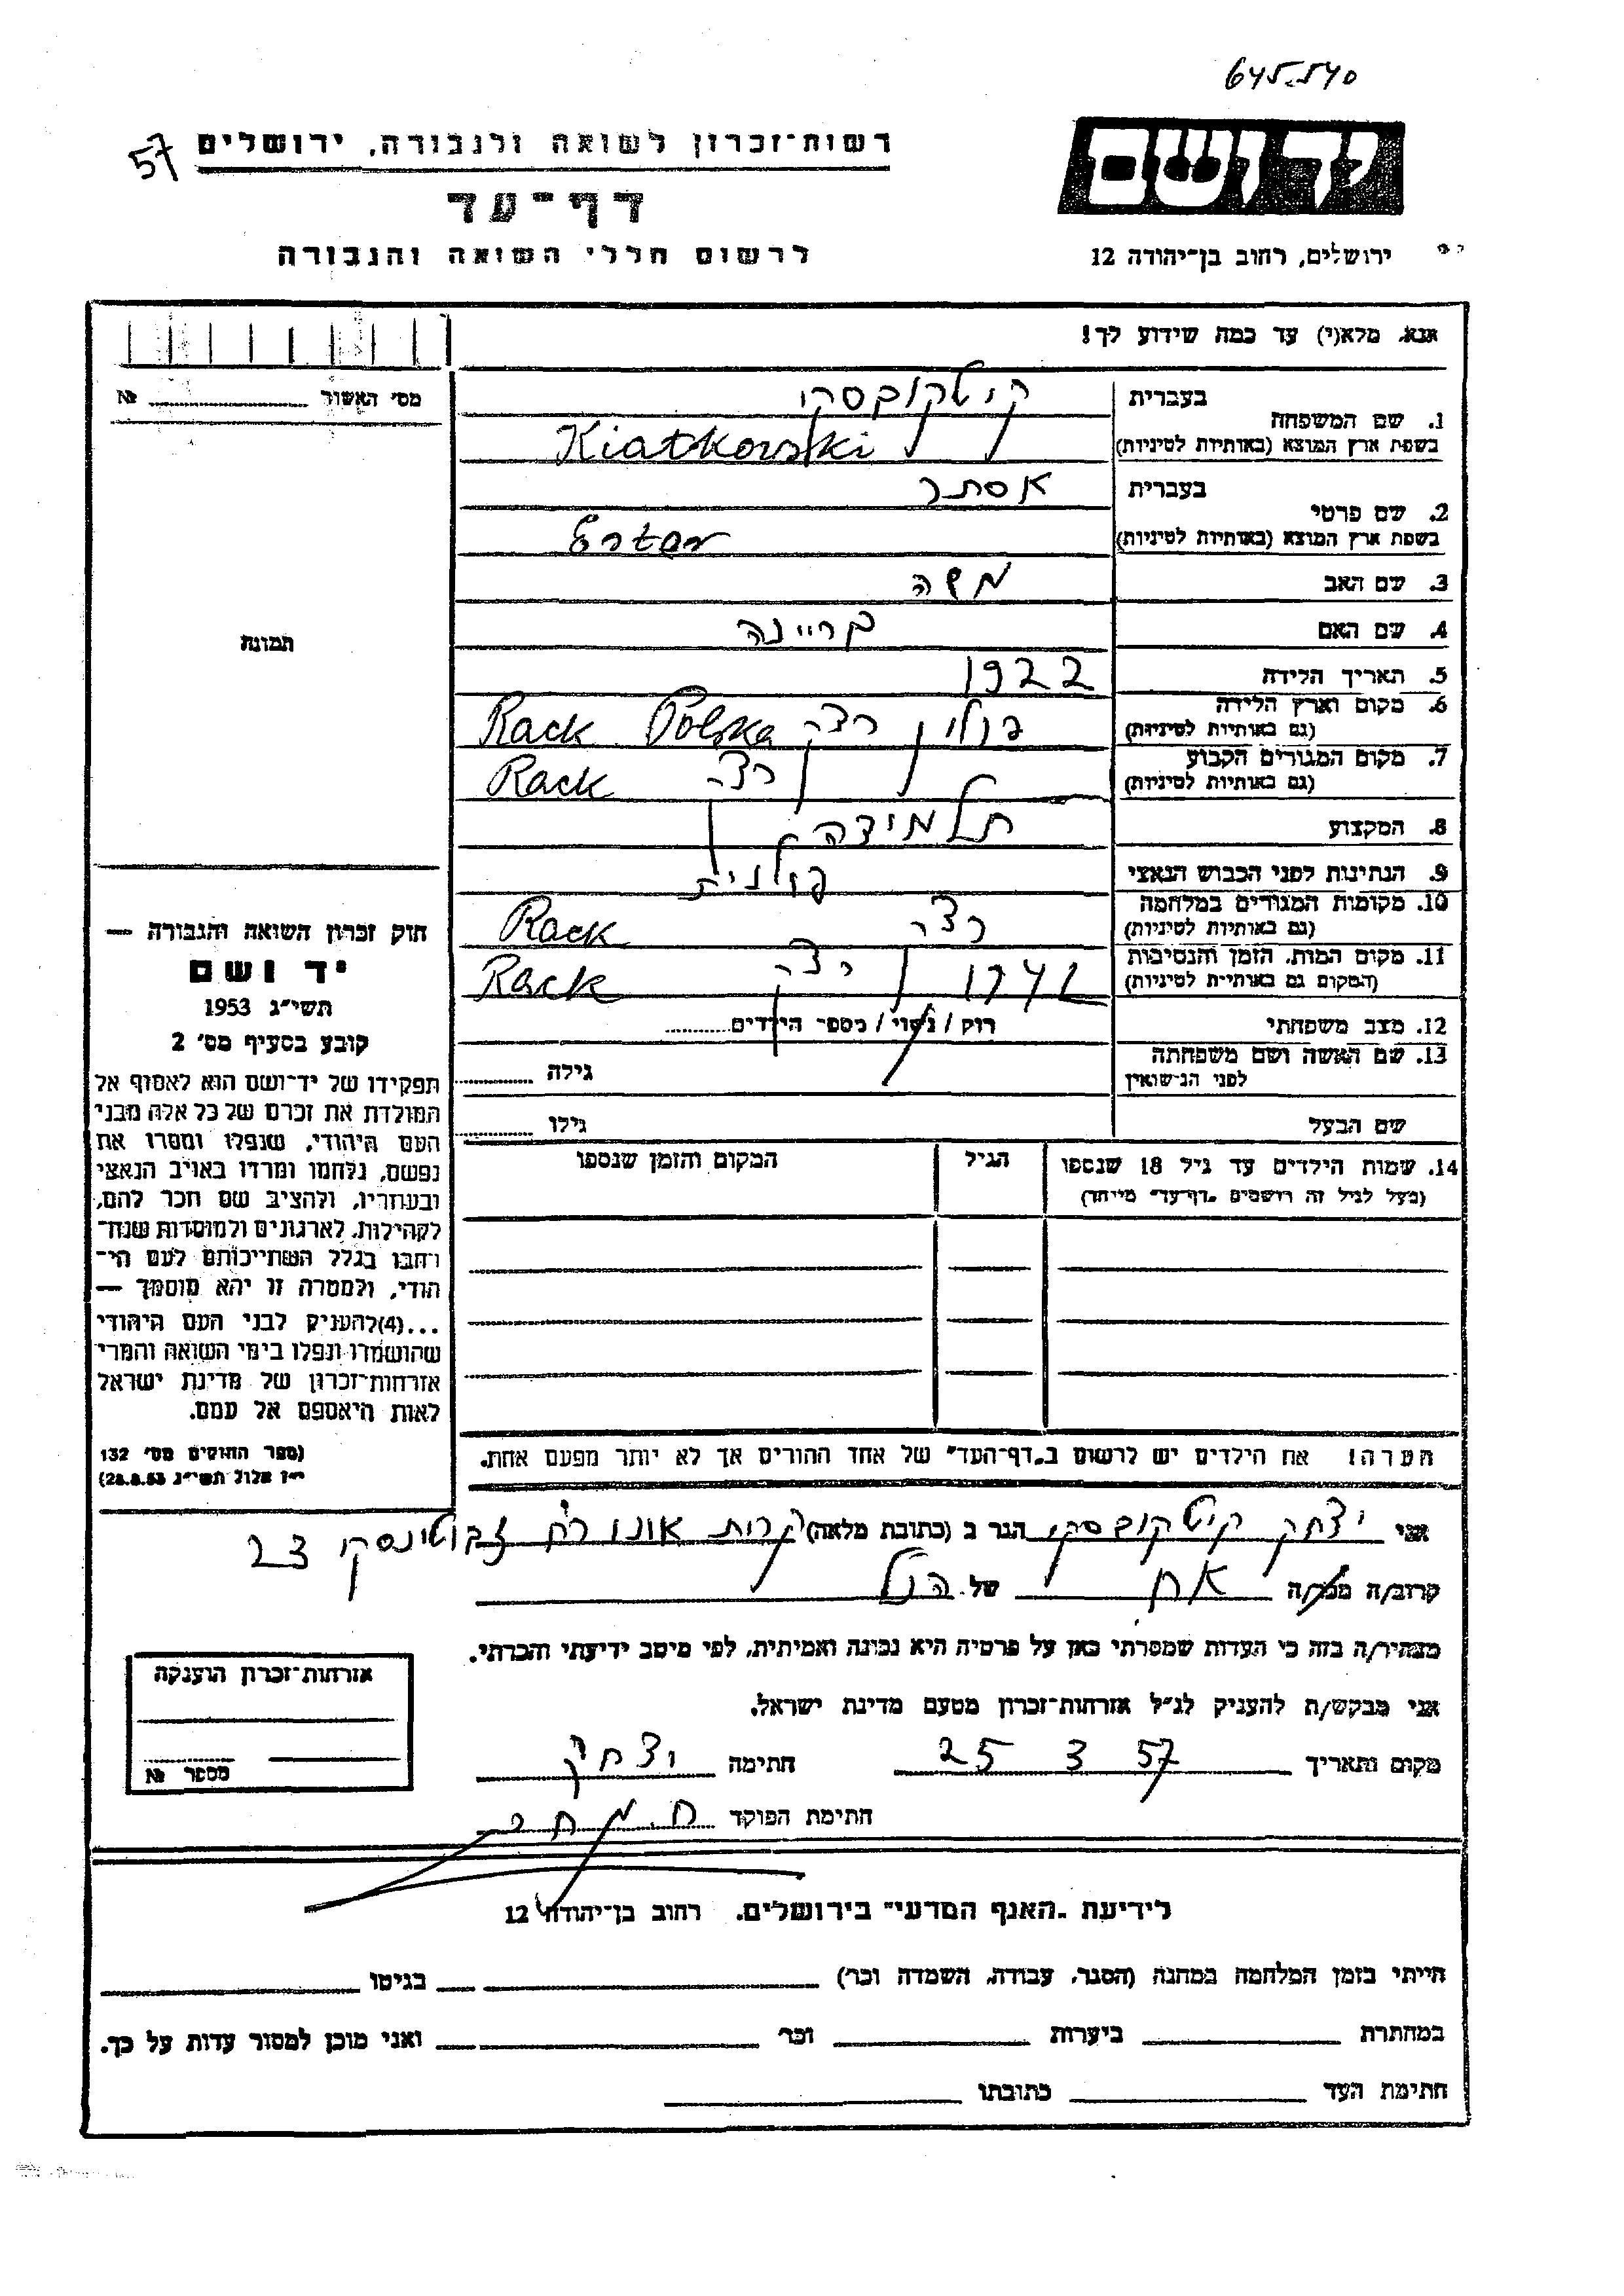 645.540
57
רשות־זכרון לשואה ולגבורה, ירושלים
יד ושם
דף־עד
לרשום חללי השואה והגבורה
ירושלים, רחוב בן־יהודה 12
אנא, מלא(י) עד כמה שידוע לך!
מס׳ האשור № 
1. שם המשפחה בעברית קיטקובסקי
בשפת ארץ המוצא (באותיות לטיניות) Kiatkowski
2. שם פרטי בעברית אסתר
בשפת ארץ המוצא (באותיות לטיניות) Ester
3. שם האב משה
4. שם האם
תמונה
5. תאריך הלידה 1922
6. מקום וארץ הלידה (גם באותיות לטיניות) פולין רצק Rack Polska
7. מקום המגורים הקבוע (גם באותיות לטיניות) רצק Rack
8. המקצוע תלמידה
9. הנתינות לפני הכבוש הנאצי פולנית
10. מקומות המגורים במלחמה (גם באותיות לטיניות) רצק Rack
11. מקום המות, הזמן והנסיבות (המקום גם באותיות לטיניות) רצק Rack
12. מצב משפחתי רוק / נשוי / מספר הילדים
13. שם האשה ושם משפחתה לפני הנישואין גילה
שם הבעל גילו
14. שמות הילדים עד גיל 18 שנספו הגיל המקום והזמן שנספו
(מעל לגיל זה רושמים „דף־עד״ מיוחד)
חוק זכרון השואה והגבורה —
יד ושם
תשי״ג 1953
קובע בסעיף מס׳ 2
תפקידו של יד־ושם הוא לאסוף אל
המולדת את זכרם של כל אלה מבני
העם היהודי, שנפלו ומסרו את
נפשם, נלחמו ומרדו באויב הנאצי
ובעוזריו, ולהציב שם וזכר להם,
לקהילות, לארגונים ולמוסדות שנח־
רבו בגלל השתייכותם לעם הי־
הודי, ולמטרה זו יהא מוסמך —
...(4)להעניק לבני העם היהודי
שהושמדו ונפלו בימי השואה והמרי
אזרחות־זכרון של מדינת ישראל
לאות היאספם אל עמם.
(ספר החוקים מס׳ 132
י״ז אלול תשי״ג 28.8.53)
הערה! את הילדים יש לרשום ב„דף־העד״ של אחד ההורים אך לא יותר מפעם אחת.
אני יצחק קיטקובסקי הגר ב (כתובת מלאה) קרית אונו רח׳ זבוטינסקי 23
קרוב/ה מכר/ה אח של הנ״ל
מצהיר/ה בזה כי העדות שמסרתי כאן על פרטיה היא נכונה ואמיתית, לפי מיטב ידיעתי והכרתי.
אני מבקש/ת להעניק לנ״ל אזרחות־זכרון מטעם מדינת ישראל.
מקום ותאריך 25 3 57 חתימה יצחק
חתימת הפוקד
אזרחות־זכרון הוענקה
מספר №
לידיעת „האגף המדעי״ בירושלים, רחוב בן־יהודה 12
הייתי בזמן המלחמה במחנה (הסגר, עבודה, השמדה וכו׳) בגיטו
במחתרת ביערות וכו׳ ואני מוכן למסור עדות על כך.
חתימת העד כתובתו